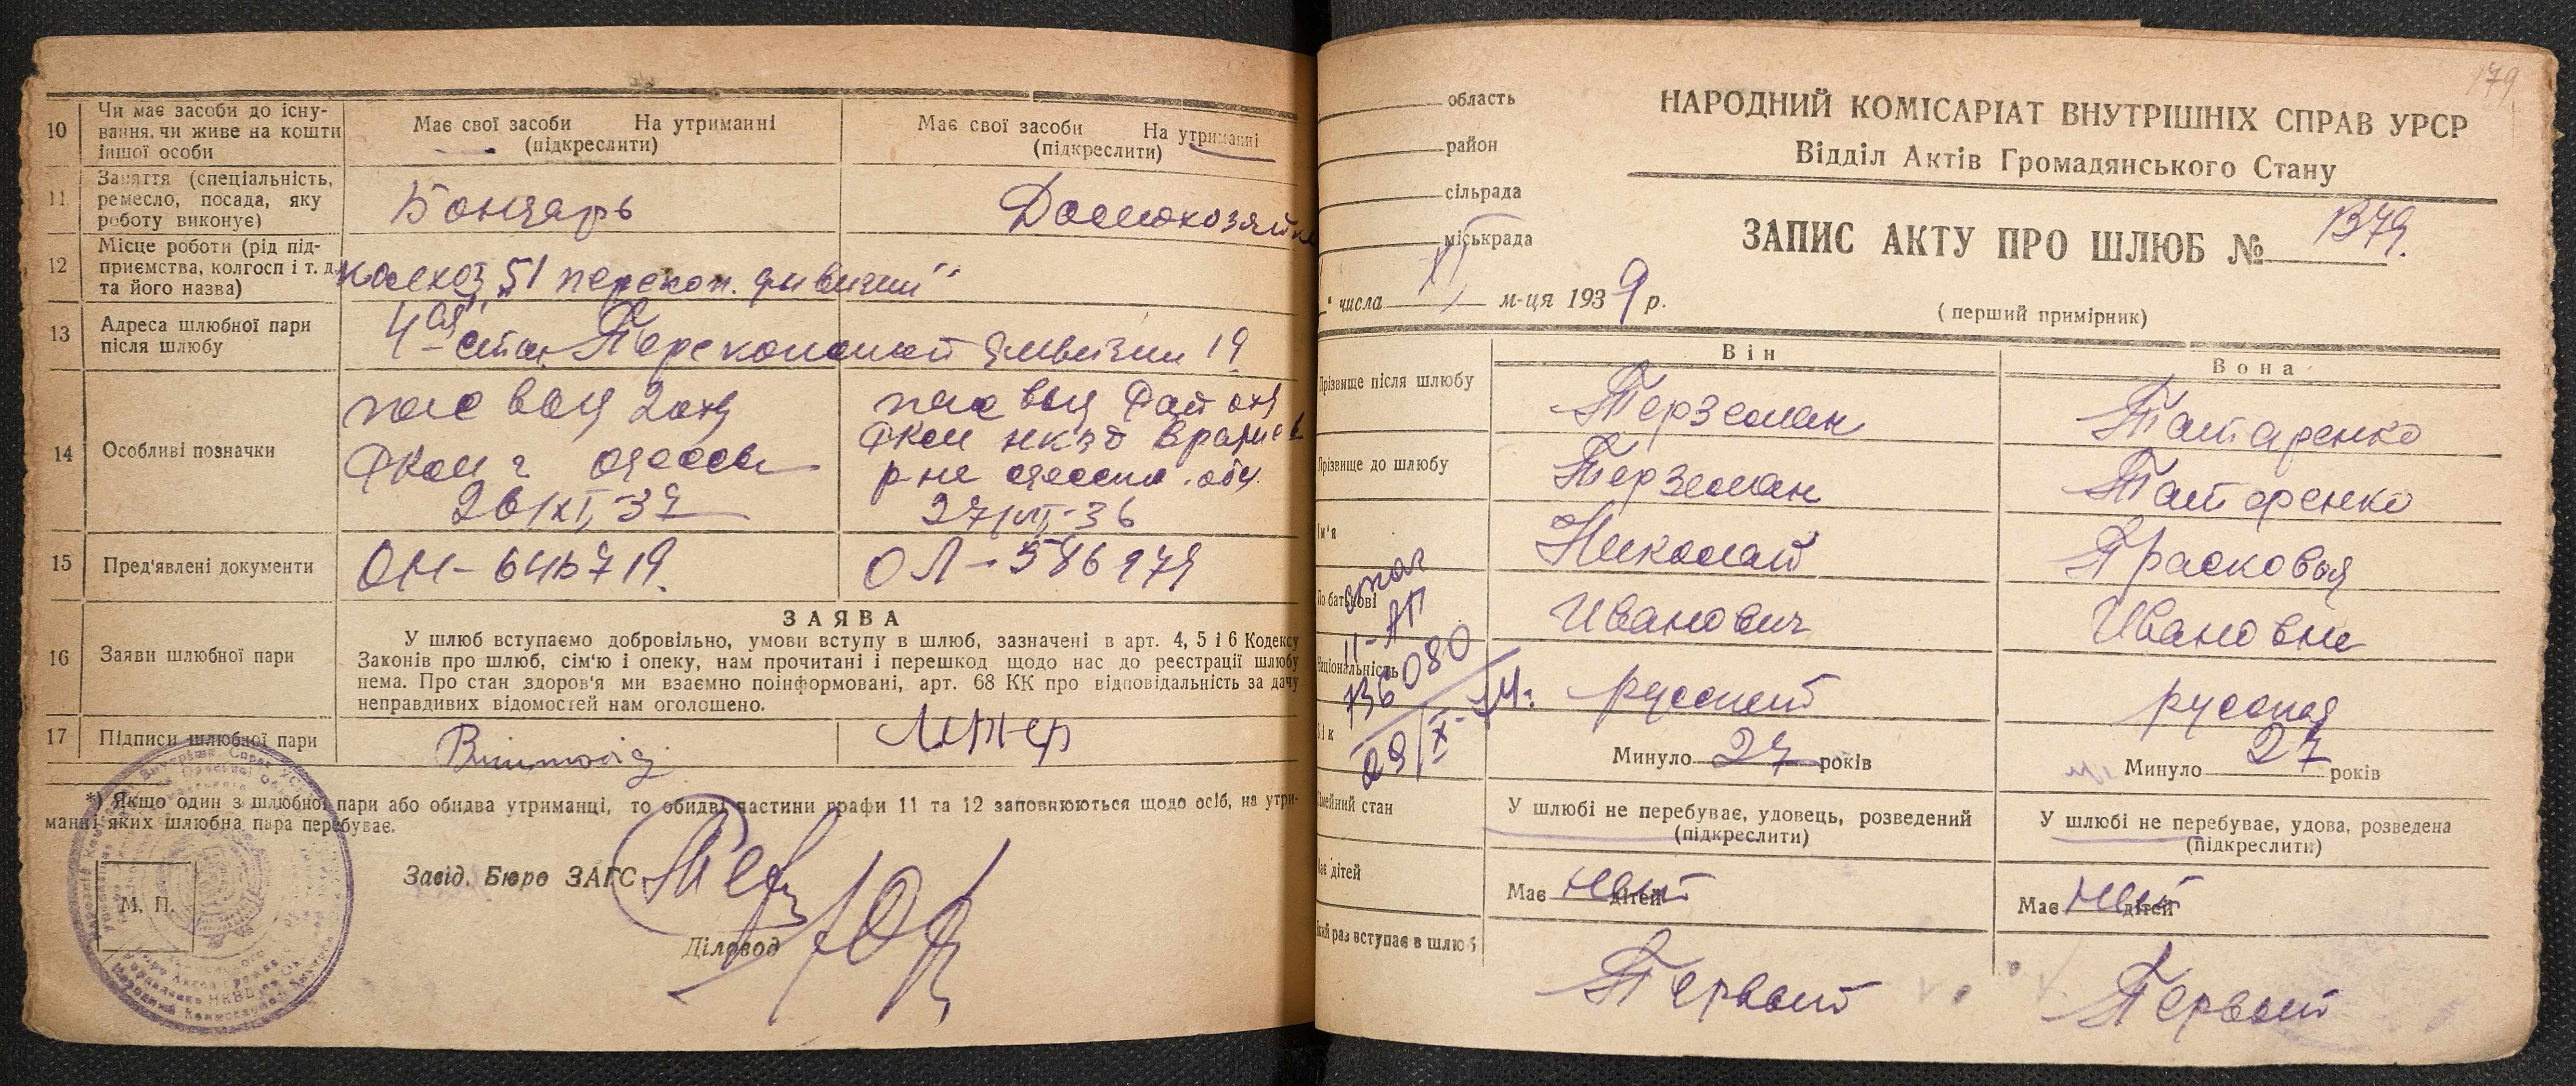 10 Чи має засоби до існу-
вання, чи живе на кошти
іншої особи
Має свої засоби На утриманні
(підкреслити)
Має свої засоби На утриманні
(підкреслити)
11 Заняття (спеціальність,
ремесло, посада, яку
роботу виконує)
Бончарь
Домохозяйка
12 Місце роботи (рід під-
приємства, колгосп і т. д.
та його назва)
колхоз „51 перекоп. дивизии"
13 Адреса шлюбної пари
після шлюбу
4ая стан. Перекопской дивизии 19
14 Особливі позначки
пас выд 2 отд
РКМ г Одессы
26/XI-37
пас выд
РКМ НКВД Врадиев
р-на Одесск. обл.
27/VII-36
15 Пред'явлені документи
ОН-646719.
ОЛ-586979
16 Заяви шлюбної пари
ЗАЯВА
У шлюб вступаємо добровільно, умови вступу в шлюб, зазначені в арт. 4, 5 і 6 Кодексу
Законів про шлюб, сім'ю і опеку, нам прочитані і перешкод щодо нас до реєстрації шлюбу
нема. Про стан здоров'я ми взаємно поінформовані, арт. 68 КК про відповідальність за дачу
неправдивих відомостей нам оголошено.
17 Підписи шлюбної пари
*) Якщо один з шлюбної пари або обидва утриманці, то обидві частини графи 11 та 12 заповнюються щодо осіб, на утри-
манні яких шлюбна пара перебуває.
Завід. Бюро ЗАГС
Діловод
М. П.
179
область
район
сільрада
міськрада
" числа XI м-ця 1939 р.
НАРОДНИЙ КОМІСАРІАТ ВНУТРІШНІХ СПРАВ УРСР
Відділ Актів Громадянського Стану
ЗАПИС АКТУ ПРО ШЛЮБ № 1379.
(перший примірник)
Він
Вона
Прізвище після шлюбу
Терземан
Татаренко
Прізвище до шлюбу
Терземан
Татаренко
Ім'я
Николай
Прасковья
По батькові
Иванович
Ивановна
Національність
русский
русская
II-АП
736080
29/X-54г.
Вік
Минуло 27 років
Минуло 27 років
Сімейний стан
У шлюбі не перебуває, удовець, розведений
(підкреслити)
У шлюбі не перебуває, удова, розведена
(підкреслити)
Має дітей
Має нет дітей
Має нет дітей
Який раз вступає в шлюб
Первый
Первый